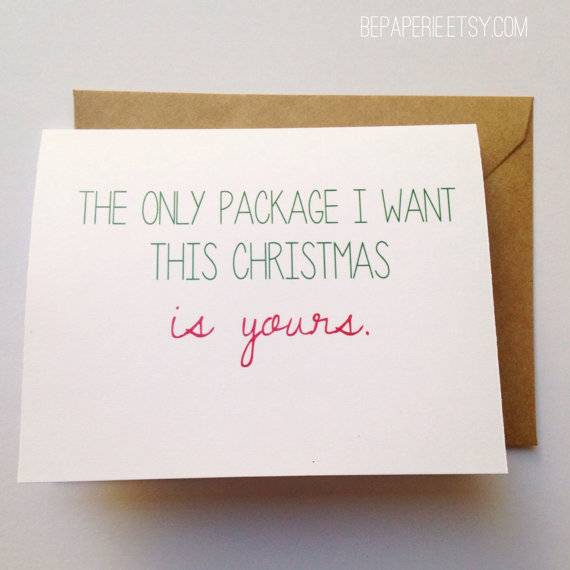 BEPAPERIE.ETSY.COM
THE ONLY PACKAGE I WANT
THIS CHRISTMAS
is yours.